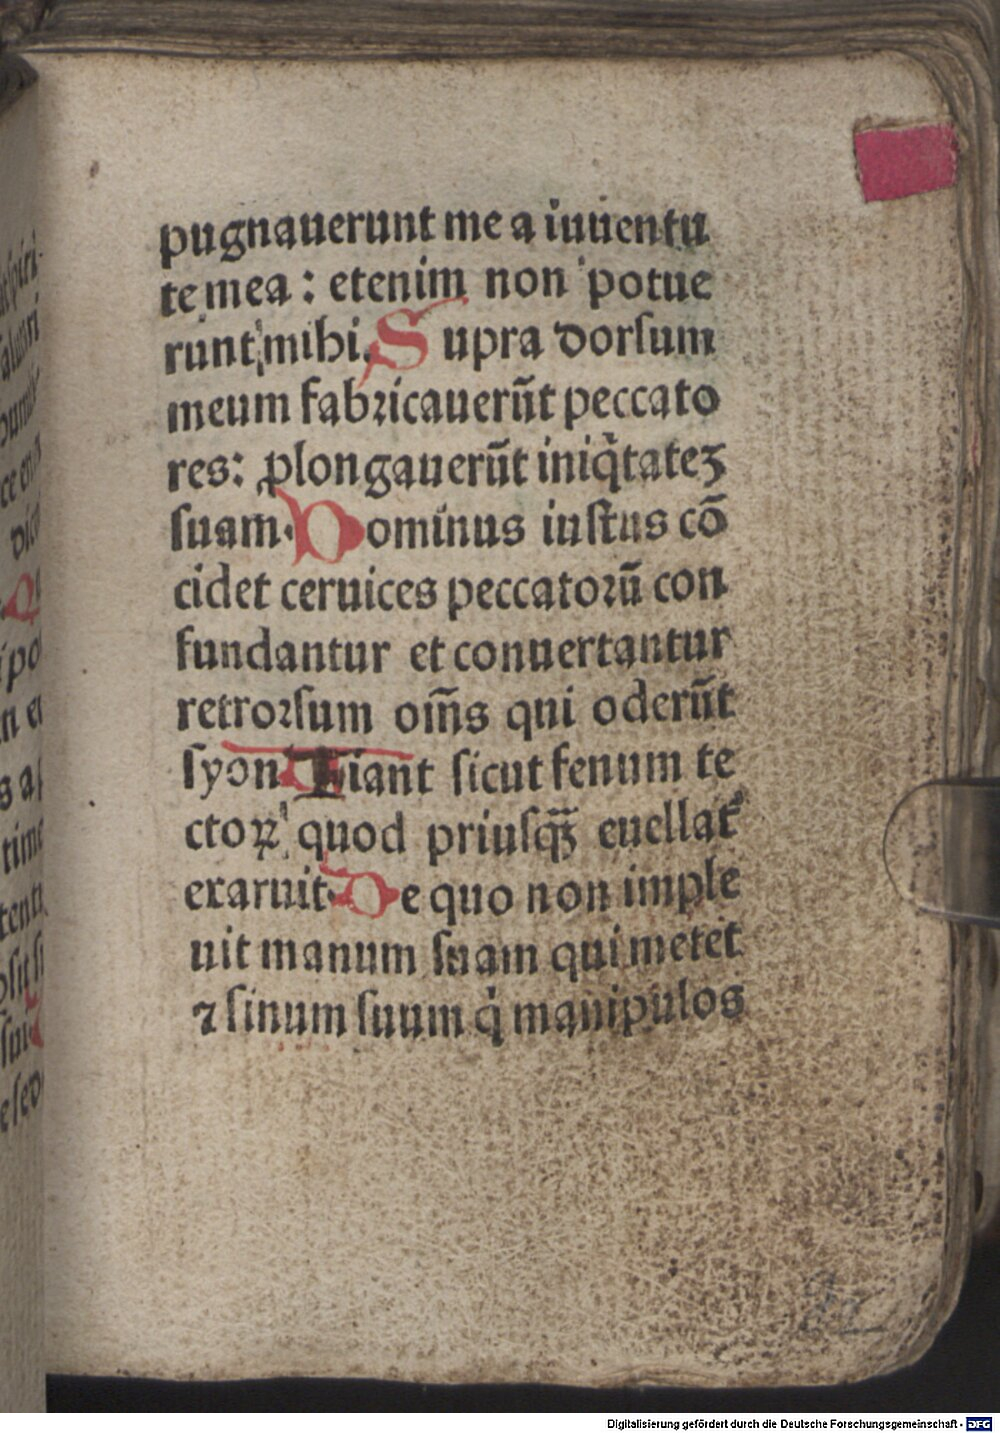 pugnauerunt me a iuuentu
te mea : etenim non potue
runt mihi. Supra dorſum
meum fabꝛicauerūt peccato
res: ꝓlongauerūt iniq̇tateꝫ
ſuam. Dominus iuſtus cō
cidet ceruices peccatoꝛū con
fundantur et conuertantur
retroꝛſum om̄s qui oderūt
ſyon Fiant ſicut fenum te
ctoꝝ quod priuſqꝫ̄ euellat᷑
exaruit. De quo non imple
uit manum ſuam qui metet
⁊ ſinum ſuum q̇ manipulos
Digitalisierung gefördert durch die Deutsche Forschungsgemeinschaft - DFG